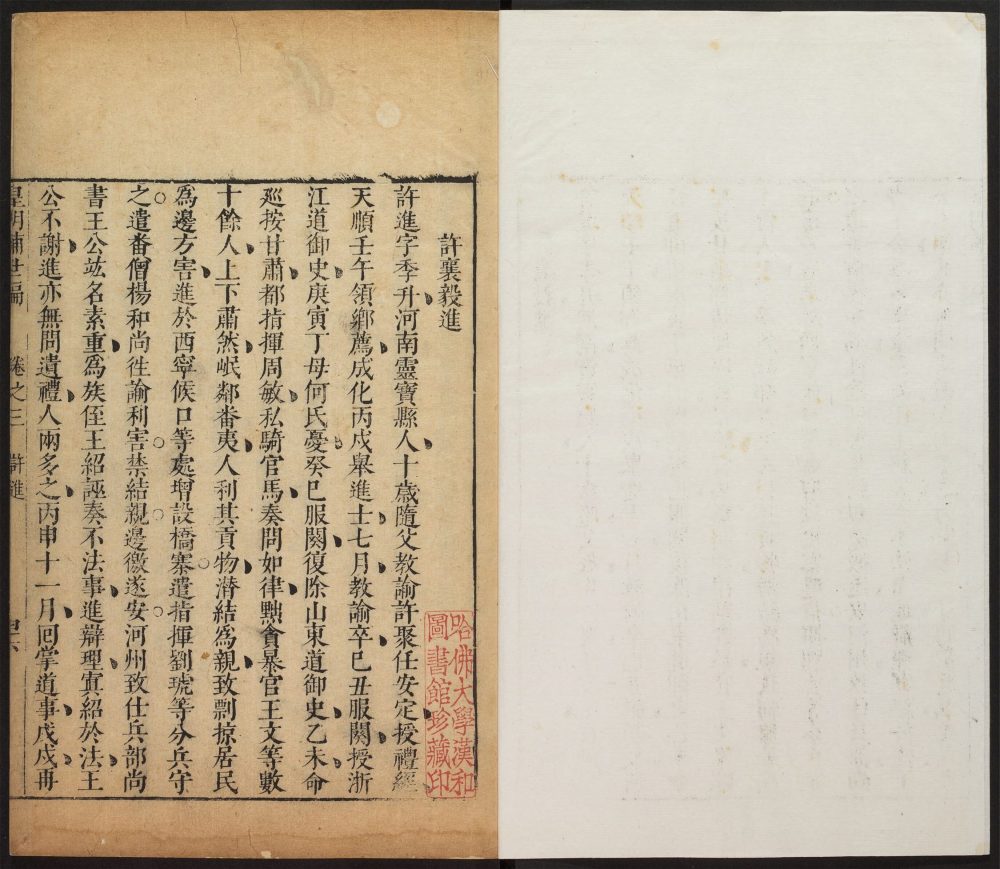 許襄毅進
許進字季升河南靈寶縣人十歲隨父教諭許聚任安定授禮經
天順壬午領鄉薦成化丙戌舉進士七月教諭卒巳丑服闋授浙
江道御史庚寅丁母何氏憂癸巳服闋復除山東道御史乙未命
廵按甘肅都指揮周敏私騎官馬奏問如律黜貪暴官王文等數
十餘人上下肅然岷鄰畨夷人利其貢物潜結爲親致剽掠居民
爲邊方害進於西寧候口等處增設橋寨遣指揮劉琥等分兵守
之遣畨僧楊和尚徃諭利害禁結親邊徼遂安河州致仕兵部尚
書王公竑名素重爲族侄王紹誣奏不法事進辯理寘紹於法王
公不謝進亦無問遺禮人兩多之丙申十一月囘掌道事戊戌再
皇明輔世編 卷之三 許進
哈佛大學漢和
圖書館珍藏印